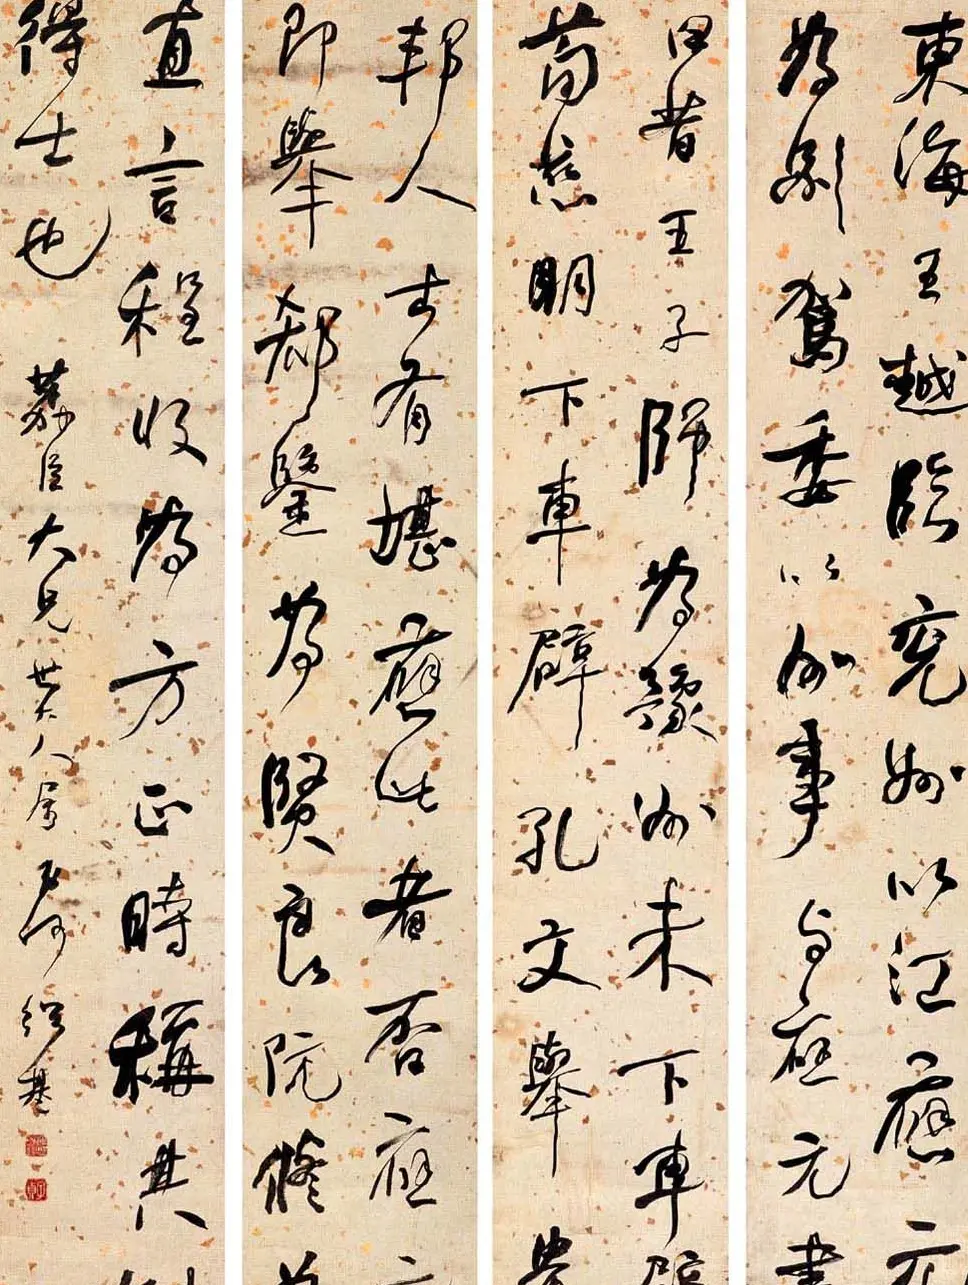 東海王越臨兗州以江應元
為別駕委以州事與應元書
曰昔王子師為豫州未下車辟
荀慈明下車辟孔文舉貴
邦人士有堪應此者否應元
即舉郗鑒為賢良阮脩為
直言程收為方正時稱其
得士也
大兄世大人屬